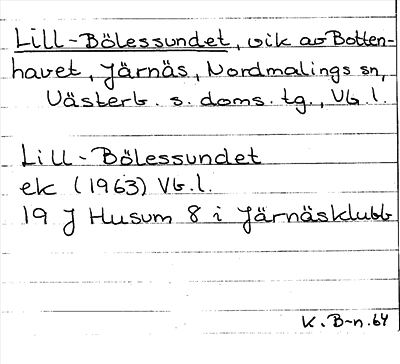 Lill-Bölessundet, vik av Botten-
havet, Järnäs, Nordmalings sn,
Västerb. s. doms. tg., Vb.l.
Lill-Bölessundet
ek (1963) Vb.l.
19 J Husum 8 i Järnäsklubb
K.B-n.64